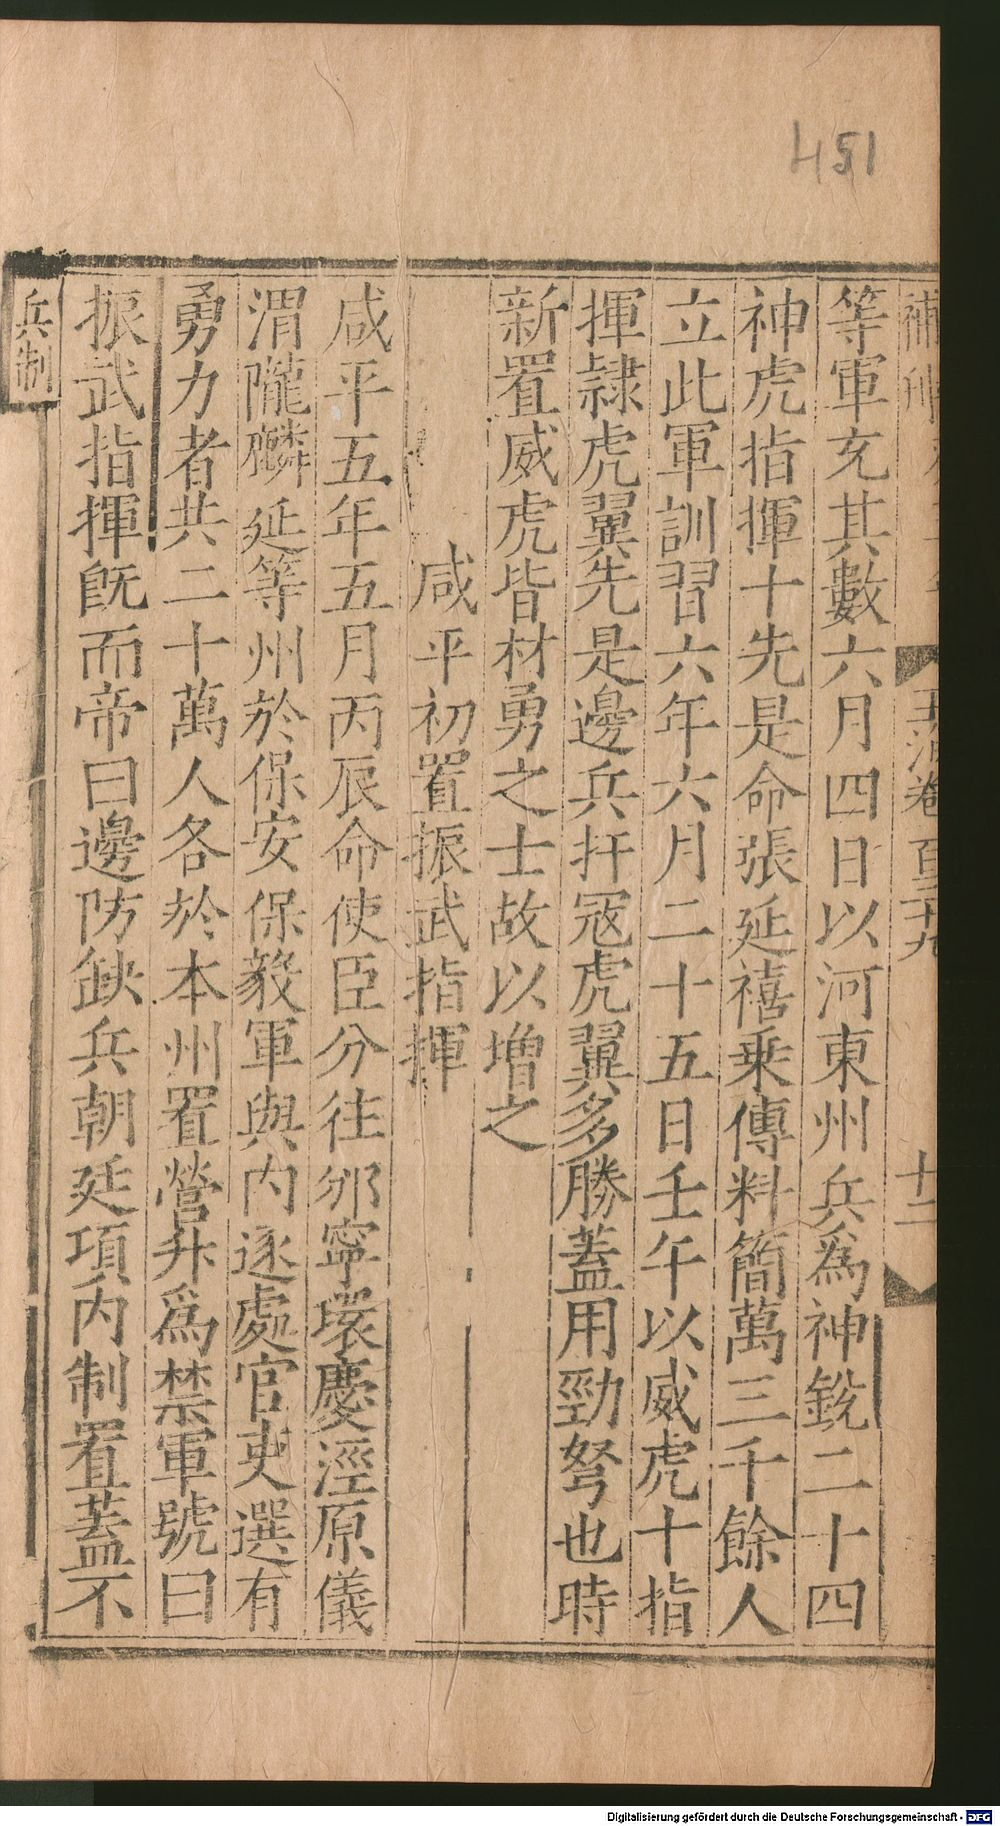 451
玉海卷百三十九
十二
等軍充其數六月四日以河東州兵爲神銳二十四
神虎指揮十先是命張延禧乗傳料簡萬三千餘人
立此軍訓習六年六月二十五日壬午以威虎十指
揮隷虎翼先是邊兵扞冦虎翼多勝蓋用勁弩也時
新置威虎皆材勇之士故以增之
咸平初置振武指揮
咸平五年五月丙辰命使臣分往邠寧環慶涇原儀
渭隴麟延等州於保安保毅軍與内逐處官吏選有
勇力者共二十萬人各於本州置營升爲禁軍號曰
振武指揮旣而帝曰邊防缺兵朝廷項内制置蓋不
兵制
Digitalisierung gefördert durch die Deutsche Forschungsgemeinschaft - DFG